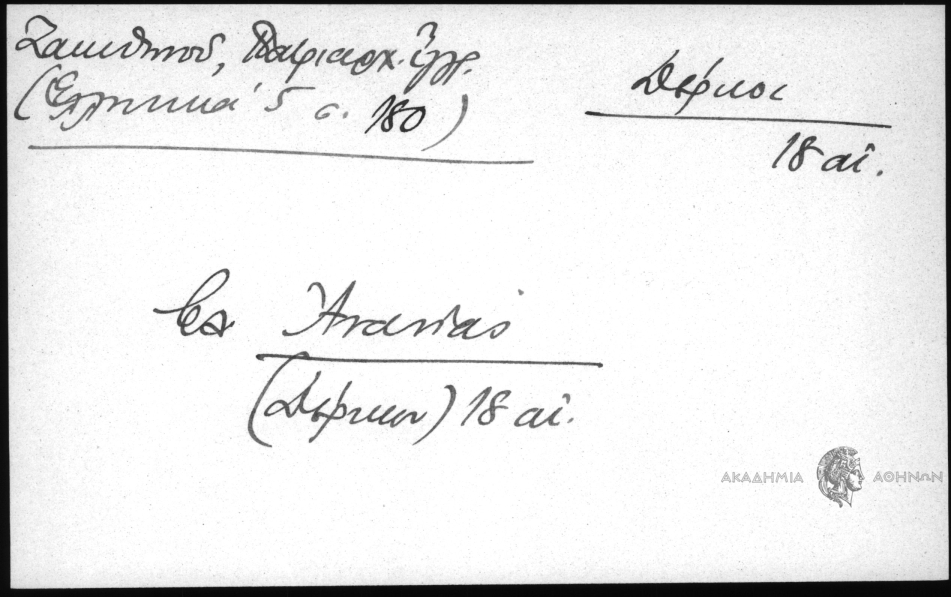 Ζακυθηνοῦ, Πατριαρχ. ἔγγρ.
(Ἑλληνικά 5 σ. 180)
Δέρκοι
18 αἰ.
Ἀνανίας
(Δέρκων) 18 αἰ.
ΑΚΑΔΗΜΙΑ ΑΘΗΝΩΝ